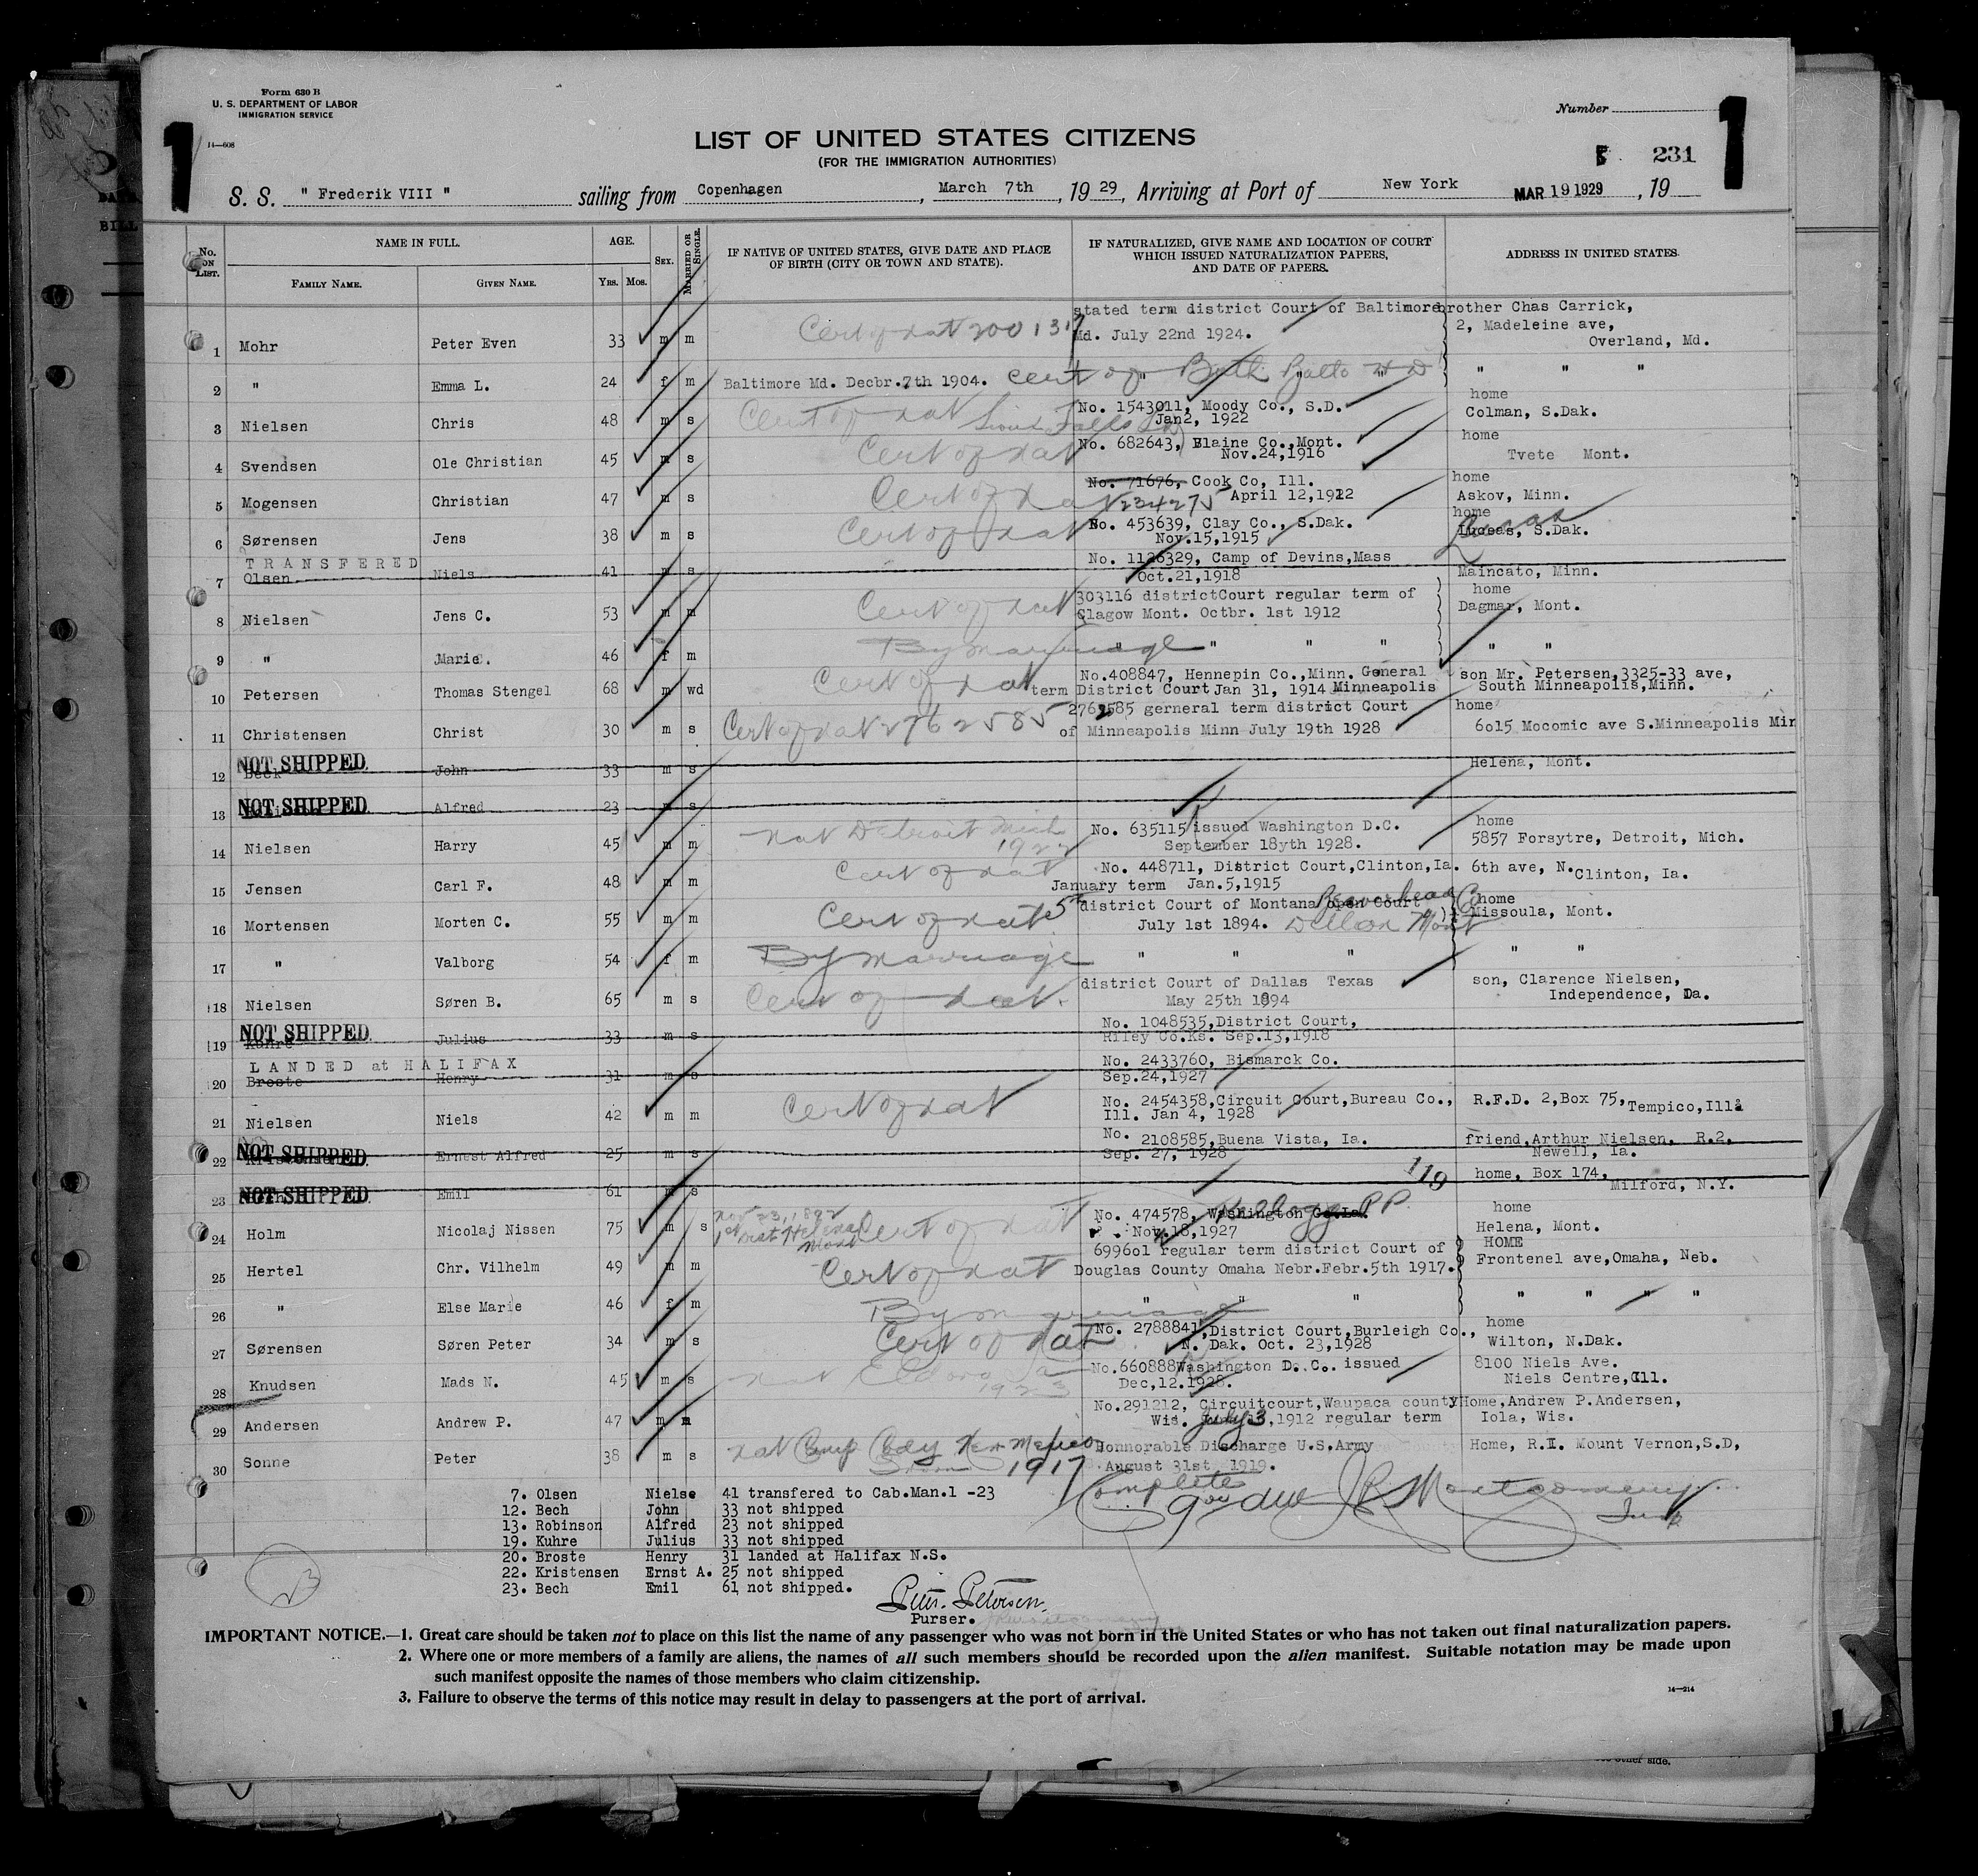 Form 630 B
U. S. DEPARTMENT OF LABOR
IMMIGRATION SERVICE
14—608
Number
1
1
LIST OF UNITED STATES CITIZENS
(FOR THE IMMIGRATION AUTHORITIES)
231
S. S. " Frederik VIII " sailing from Copenhagen, March 7th, 1929, Arriving at Port of New York MAR 19 1929, 19
No. ON LIST.
NAME IN FULL.
FAMILY NAME.
GIVEN NAME.
AGE.
YRS. MOS.
SEX.
MARRIED OR SINGLE.
IF NATIVE OF UNITED STATES, GIVE DATE AND PLACE OF BIRTH (CITY OR TOWN AND STATE).
IF NATURALIZED, GIVE NAME AND LOCATION OF COURT WHICH ISSUED NATURALIZATION PAPERS, AND DATE OF PAPERS.
ADDRESS IN UNITED STATES.
stated term district Court of Baltimore brother Chas Carrick,
1 Mohr Peter Even 33 m m Cert of Nat 200131 Md. July 22nd 1924. 2, Madeleine ave, Overland, Md.
2 " Emma L. 24 f m Baltimore Md. Decbr.7th 1904. cert of Birth Balto Md " " "
3 Nielsen Chris 48 m s Cert of Nat Sioux Falls SD No. 1543011, Moody Co., S.D. Jan2, 1922 home Colman, S.Dak.
4 Svendsen Ole Christian 45 m s Cert of Nat No. 682643, Blaine Co.,Mont. Nov.24,1916 home Tvete Mont.
5 Mogensen Christian 47 m s Cert of Nat No. 71676, Cook Co, Ill. 234275 April 12,1912 home Askov, Minn.
6 Sørensen Jens 38 m s Cert of Nat No. 453639, Clay Co., S.Dak. Nov.15,1915 home Lucas, S.Dak.
TRANSFERED
7 Olsen Niels 41 m s No. 1126329, Camp of Devins,Mass Oct.21,1918 Maincato, Minn.
8 Nielsen Jens C. 53 m m Cert of Nat 303116 districtCourt regular term of Glagow Mont. Octbr. 1st 1912 home Dagmar, Mont.
9 " Marie. 46 f m By marriage " " " " " "
10 Petersen Thomas Stengel 68 m wd Cert of Nat No.408847, Hennepin Co.,Minn. General term District Court Jan 31, 1914 Minneapolis son Mr. Petersen,3325-33 ave, South Minneapolis,Minn.
11 Christensen Christ 30 m s Cert of Nat 2762585 2762585 gerneral term district Court of Minneapolis Minn July 19th 1928 home 6o15 Mocomic ave S.Minneapolis Min
NOT SHIPPED.
12 Beck John 33 m s Helena, Mont.
NOT SHIPPED.
13 Alfred 23 m s
14 Nielsen Harry 45 m m Nat Detroit Mich 1922 No. 635115 issued Washington D.C. September 18yth 1928. home 5857 Forsytre, Detroit, Mich.
15 Jensen Carl F. 48 m m Cert of Nat No. 448711, District Court,Clinton,Ia. January term Jan.5,1915 6th ave, N.Clinton, Ia.
16 Mortensen Morten C. 55 m m Cert of Nat 5th district Court of Montana open Court Beaverhead Co July 1st 1894. Dillon Mont home Missoula, Mont.
17 " Valborg 54 f m By marriage " " " " "
18 Nielsen Søren B. 65 m s Cert of Nat. district Court of Dallas Texas May 25th 1894 son, Clarence Nielsen, Independence, Da.
NOT SHIPPED.
19 Kuhre Julius 33 m s No. 1048535,District Court, Riley Co.Ks. Sep.13,1918
LANDED at HALIFAX
20 Broste Henry 31 m s No. 2433760, Bismarck Co. Sep.24,1927
21 Nielsen Niels 42 m m Cert of Nat No. 2454358,Circuit Court,Bureau Co., Ill. Jan 4, 1928 R.F.D. 2,Box 75,Tempico,Ill.
NOT SHIPPED.
22 Kristensen Ernest Alfred 25 m s No. 2108585,Buena Vista, Ia. Sep. 27, 1928 friend,Arthur Nielsen, R.2, Newell, Ia.
119
NOT SHIPPED
23 Emil 61 m s home, Box 174, Milford, N.Y.
24 Holm Nicolaj Nissen 75 m s Nov 23, 1892 1st Dist Helena Mont Cert of Nat No. 474578, Washington Kellogg PP. Nov.18,1927 home Helena, Mont.
25 Hertel Chr. Vilhelm 49 m m Cert of Nat 6996o1 regular term district Court of Douglas County Omaha Nebr.Febr.5th 1917. HOME Frontenel ave,Omaha, Neb.
26 " Else Marie 46 f m By marriage " " " " " " "
27 Sørensen Søren Peter 34 m s Cert of Nat No. 2788841,District Court,Burleigh Co., N. Dak. Oct. 23,1928 home Wilton, N.Dak.
28 Knudsen Mads N. 45 m s Nat Eldora Ia 1923 No.660888Washington D. Co. issued Dec,12.1928. 8100 Niels Ave. Niels Centre,Ill.
29 Andersen Andrew P. 47 m m No.291212, Circuitcourt,Waupaca county Wis. July 3,1912 regular term Home,Andrew P.Andersen, Iola, Wis.
30 Sonne Peter 38 m s Nat Camp Cody New Mexico 1917 Honnorable Discharge U.S.Army August 31st 1919. Home, R.I. Mount Vernon,S.D,
Complete
JR Montgomery
7. Olsen Nielse 41 transfered to Cab.Man.1 -23
12. Bech John 33 not shipped
13. Robinson Alfred 23 not shipped
19. Kuhre Julius 33 not shipped
20. Broste Henry 31 landed at Halifax N.S.
22. Kristensen Ernst A. 25 not shipped
23. Bech Emil 61 not shipped.
23
Peter Petersen.
Purser.
IMPORTANT NOTICE.—1. Great care should be taken not to place on this list the name of any passenger who was not born in the United States or who has not taken out final naturalization papers.
2. Where one or more members of a family are aliens, the names of all such members should be recorded upon the alien manifest. Suitable notation may be made upon
such manifest opposite the names of those members who claim citizenship.
3. Failure to observe the terms of this notice may result in delay to passengers at the port of arrival.
14—214
other side.